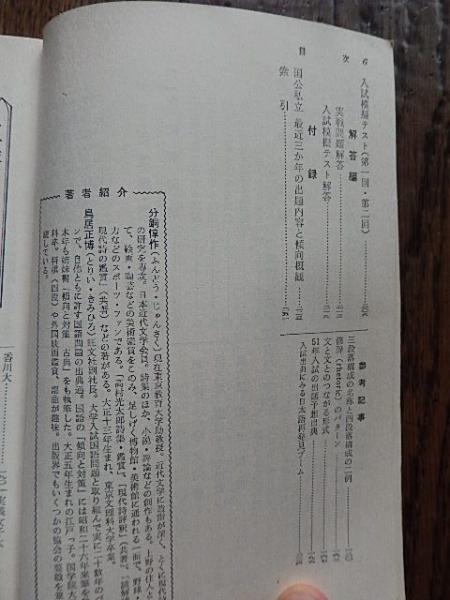 6
目次
入試模擬テスト(第一回・第二回)
解答編
実戦問題解答
入試模擬テスト解答
付録
国公私立 最近三か年の出題内容と傾向概観
索引
参考記事
三段落構成の名称と四段落構成の二例
修辞(rhetoric)のパターン
文と文とのつながる形式
51年入試の出題予想出典
入試出典にみる日本語再発見ブーム
著者紹介
分銅惇作(ふんどう・じゅんさく)現在東京教育大学助教授。近代文学に造詣が深く、とくに現代詩
の研究を専攻。日本近代文学会員。詩集のほか、小説・評論などの創作もある。上野の住人と
て、絵画・陶芸などの美術鑑賞をこのみ、足しげく博物館・美術館に通われる一面で、野球・
力などのスポーツ・ファンである。「高村光太郎詩集・鑑賞」、「現代詩評釈」(共著)、「読解
現代詩の鑑賞」(共著)などの著がある。大正十三年生まれ。東京文理科大学卒業。
鳥居正博(とりい・まさひろ)旺文社副社長。大学入試国語問題と取り組んで実に二十数年のベ
ンで、自他ともに許す国語問題の出典通。国語の「傾向と対策」には昭和二十六年来筆を
本年も姉妹範「傾向と対策 古典」をも執筆した。大正五年生まれの江戸っ子。国学院大
科卒。将棋(四段)や外国映画鑑賞、謡曲が趣味。出版界でもいくつかの協会の要職を兼
績している。
香川大